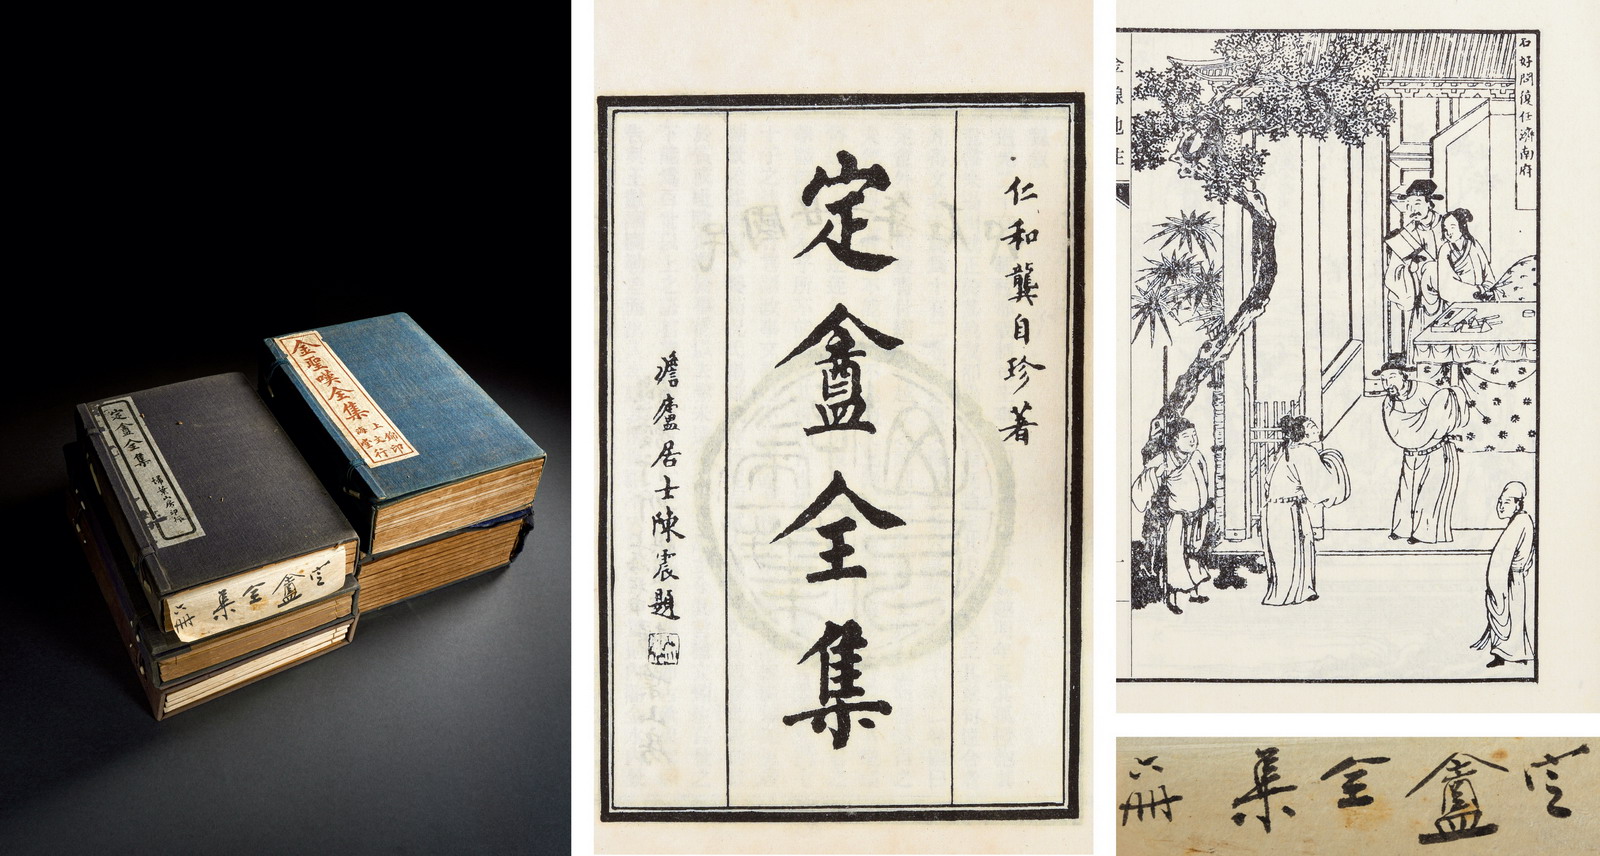 定盦全集
掃葉山房印行
定盦全集
六册
金聖嘆全集
上海
錦文堂
印行
仁和龔自珍著
定盦全集
澹廬居士陳震題
石好問復任濟南府
金線池
定盦全集
六册